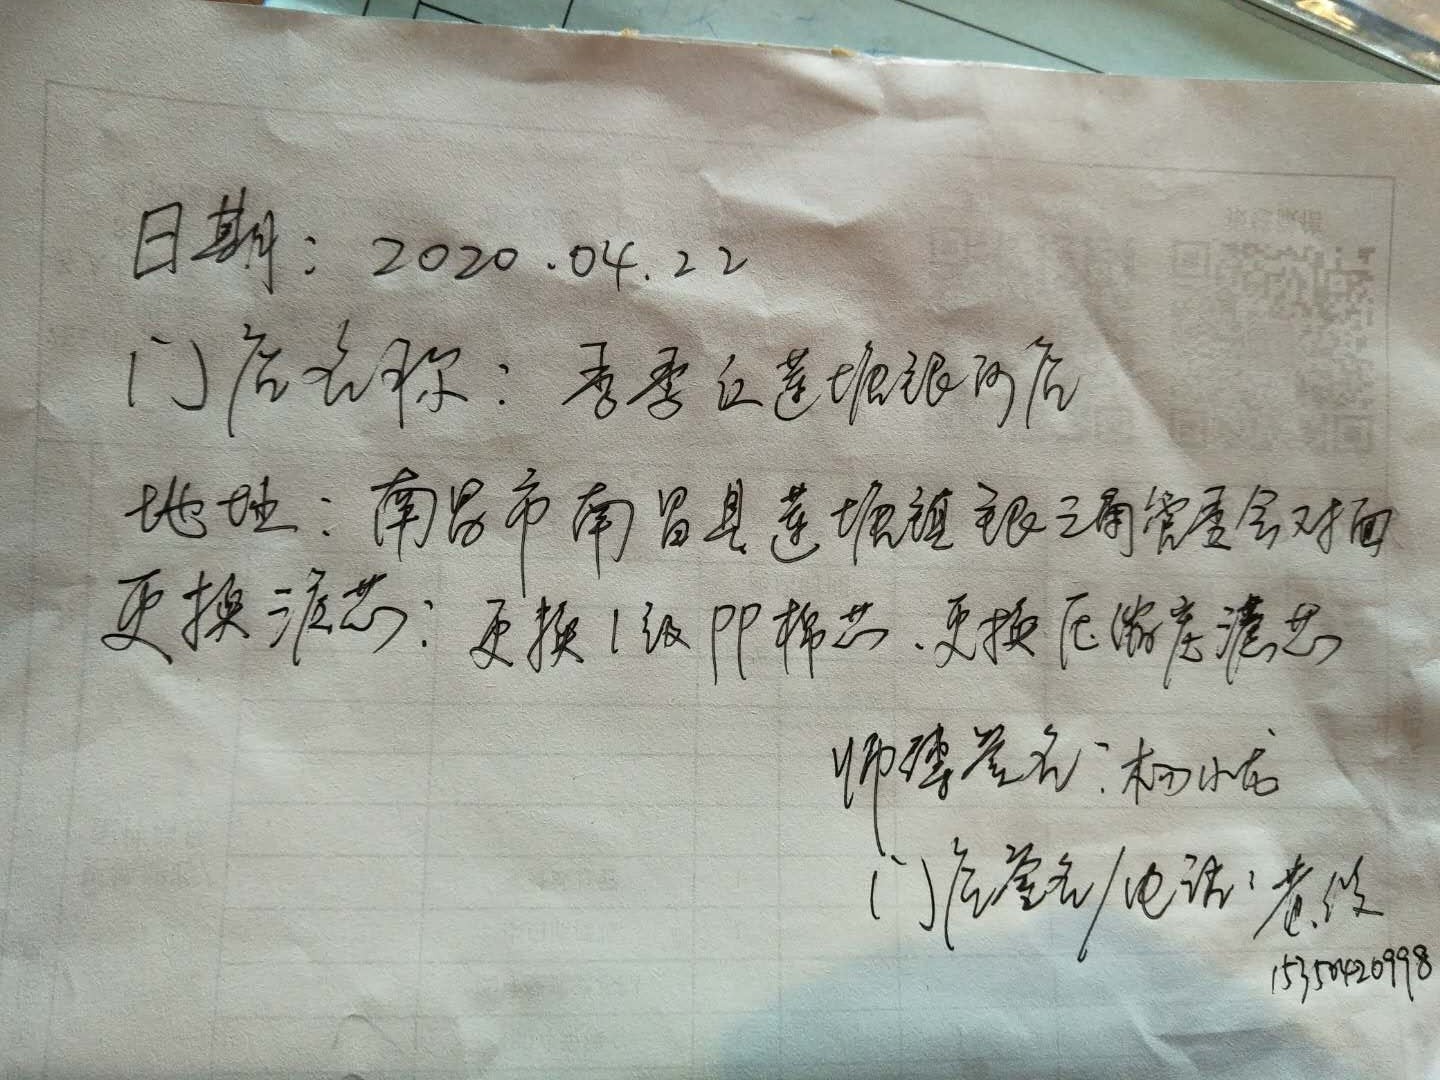 日期：2020.04.22
门店名称：季季红莲塘银河店
地址：南昌市南昌县莲塘镇银三角管委会对面
更换滤芯：更换1级PP棉芯、更换尼渗皮滤芯
师傅签名：杨小龙
门店签名/电话：